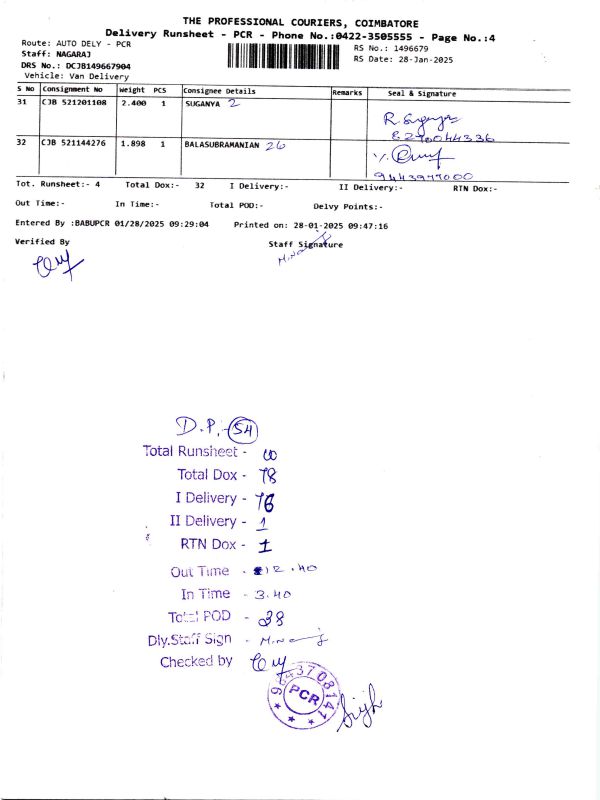 THE PROFESSIONAL COURIERS, COIMBATORE
Delivery Runsheet - PCR - Phone No.:0422-3505555 - Page No.:4
Route: AUTO DELY - PCR
RS No.: 1496679
Staff: NAGARAJ
RS Date: 28-Jan-2025
DRS No.: DCJB149667904
Vehicle: Van Delivery
S No Consignment No Weight PCS Consignee Details Remarks Seal & Signature
31 CJB 521201108 2.400 1 SUGANYA 2
32 CJB 521144276 1.898 1 BALASUBRAMANIAN 26
Tot. Runsheet:- 4 Total Dox:- 32 I Delivery:- II Delivery:- RTN Dox:-
Out Time:- In Time:- Total POD:- Delvy Points:-
Entered By :BABUPCR 01/28/2025 09:29:04 Printed on: 28-01-2025 09:47:16
Verified By Staff Signature
D.P. - 54
Total Runsheet -
Total Dox - 78
I Delivery - 76
II Delivery - 1
RTN Dox - 1
Out Time - 12.40
In Time - 3.40
Total POD - 38
Dly.Staff Sign -
Checked by
9443708141
PCR